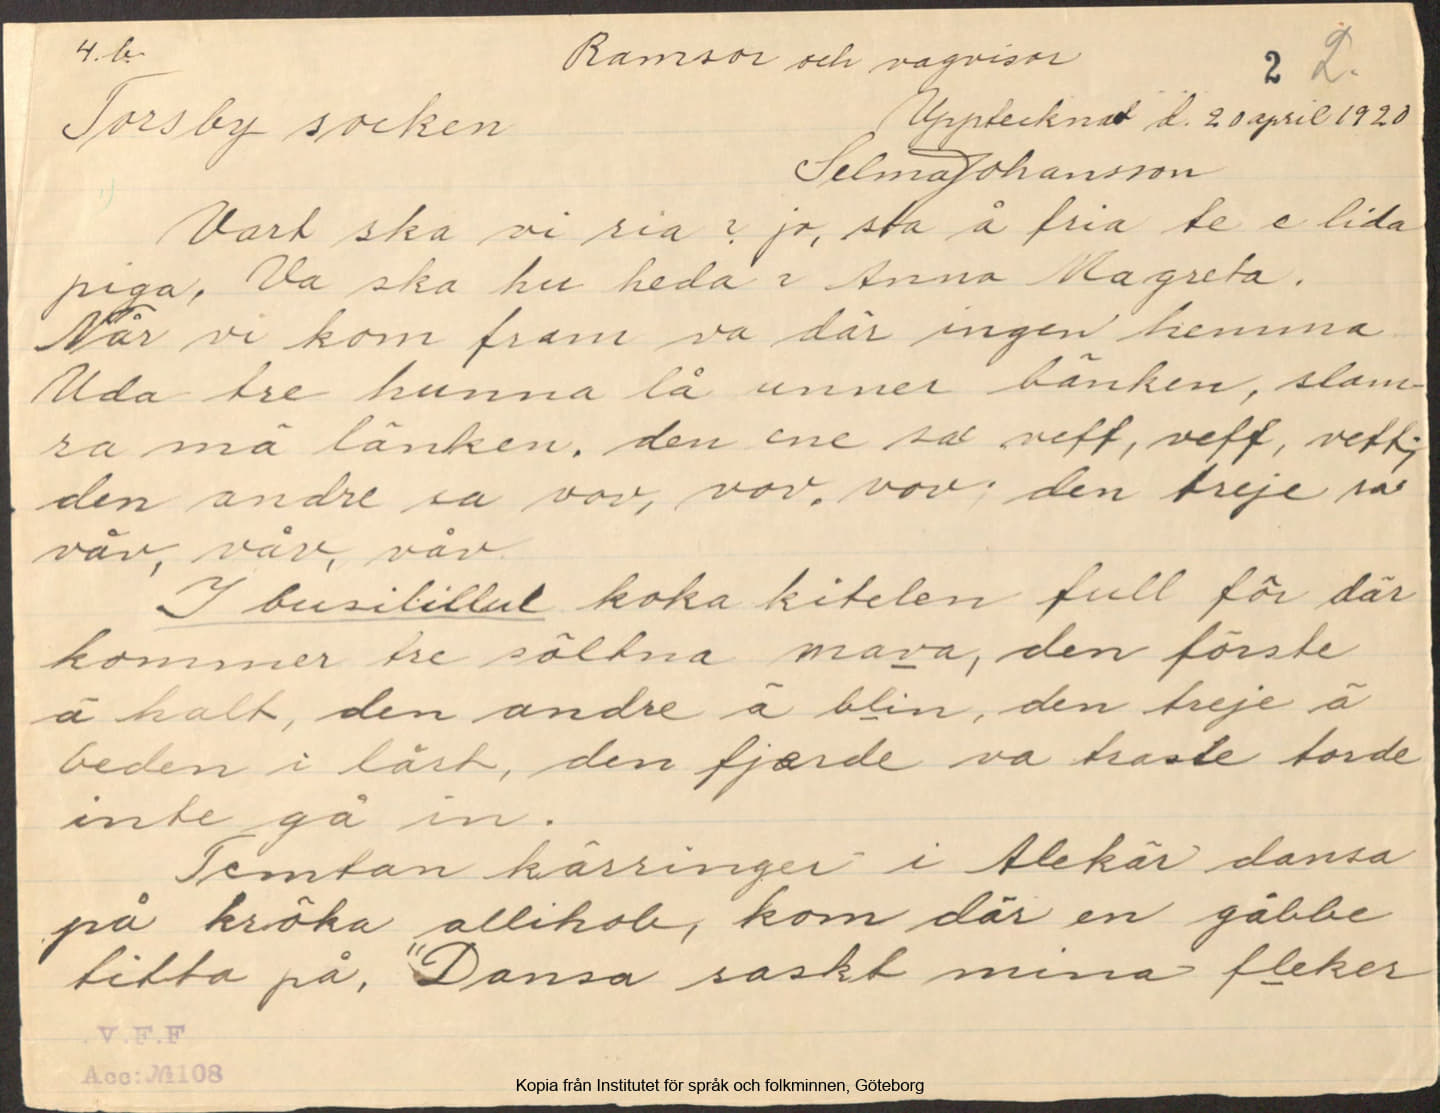 4. b.
Ramsor och vagvisor
2 2.
Torsby socken
Upptecknat d. 20 april 1920
Selma Johansson
Vart ska vi ria? jo, sta å fria te e lida
piga, Va ska hu heda? Anna Magreta.
När vi kom fram va där ingen hemma
Uda tre hunna lå unner bänken, slam-
ra mä länken. den ene sa veff, veff, veff;
den andre sa vov, vov, vov; den treje sa
våv, våv, våv
I busilillul koka kitelen full för där
kommer tre söltna mava, den förste
ä halt, den andre ä blin, den treje ä
beden i lårt, den fjærde va traste torde
inte gå in.
Femtan kärringer i Alekär dansa
på kröka allihob, kom där en gåbbe
titta på, "Dansa raskt mina fleker
V.F.F
Acc: № 108
Kopia från Institutet för språk och folkminnen, Göteborg